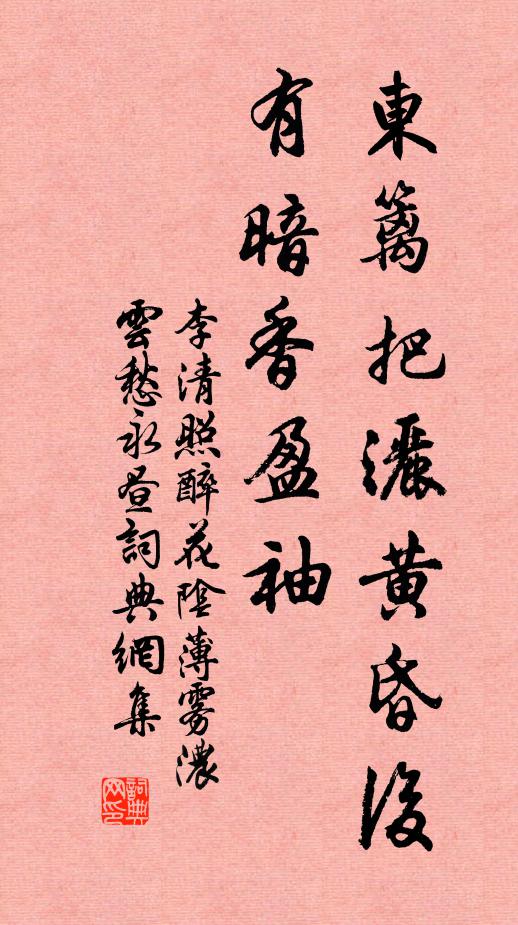 東篱把灑黃昏後
有暗香盈袖
李清照醉花陰薄雾濃
雲愁永昼詞典網集
詞典
网印